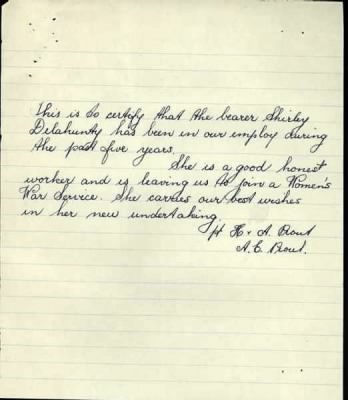 This is to certify that the bearer Shirley
Delahunty has been in our employ during
the past five years.
She is a good honest
worker and is leaving us to join a Women's
War Service. She carries our best wishes
in her new undertaking.
H. & A. Prout
A. E. Prout.